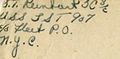 S.T. Reinhart SC 3/c
USS LST 907
c/o Fleet P.O.
N.Y.C.